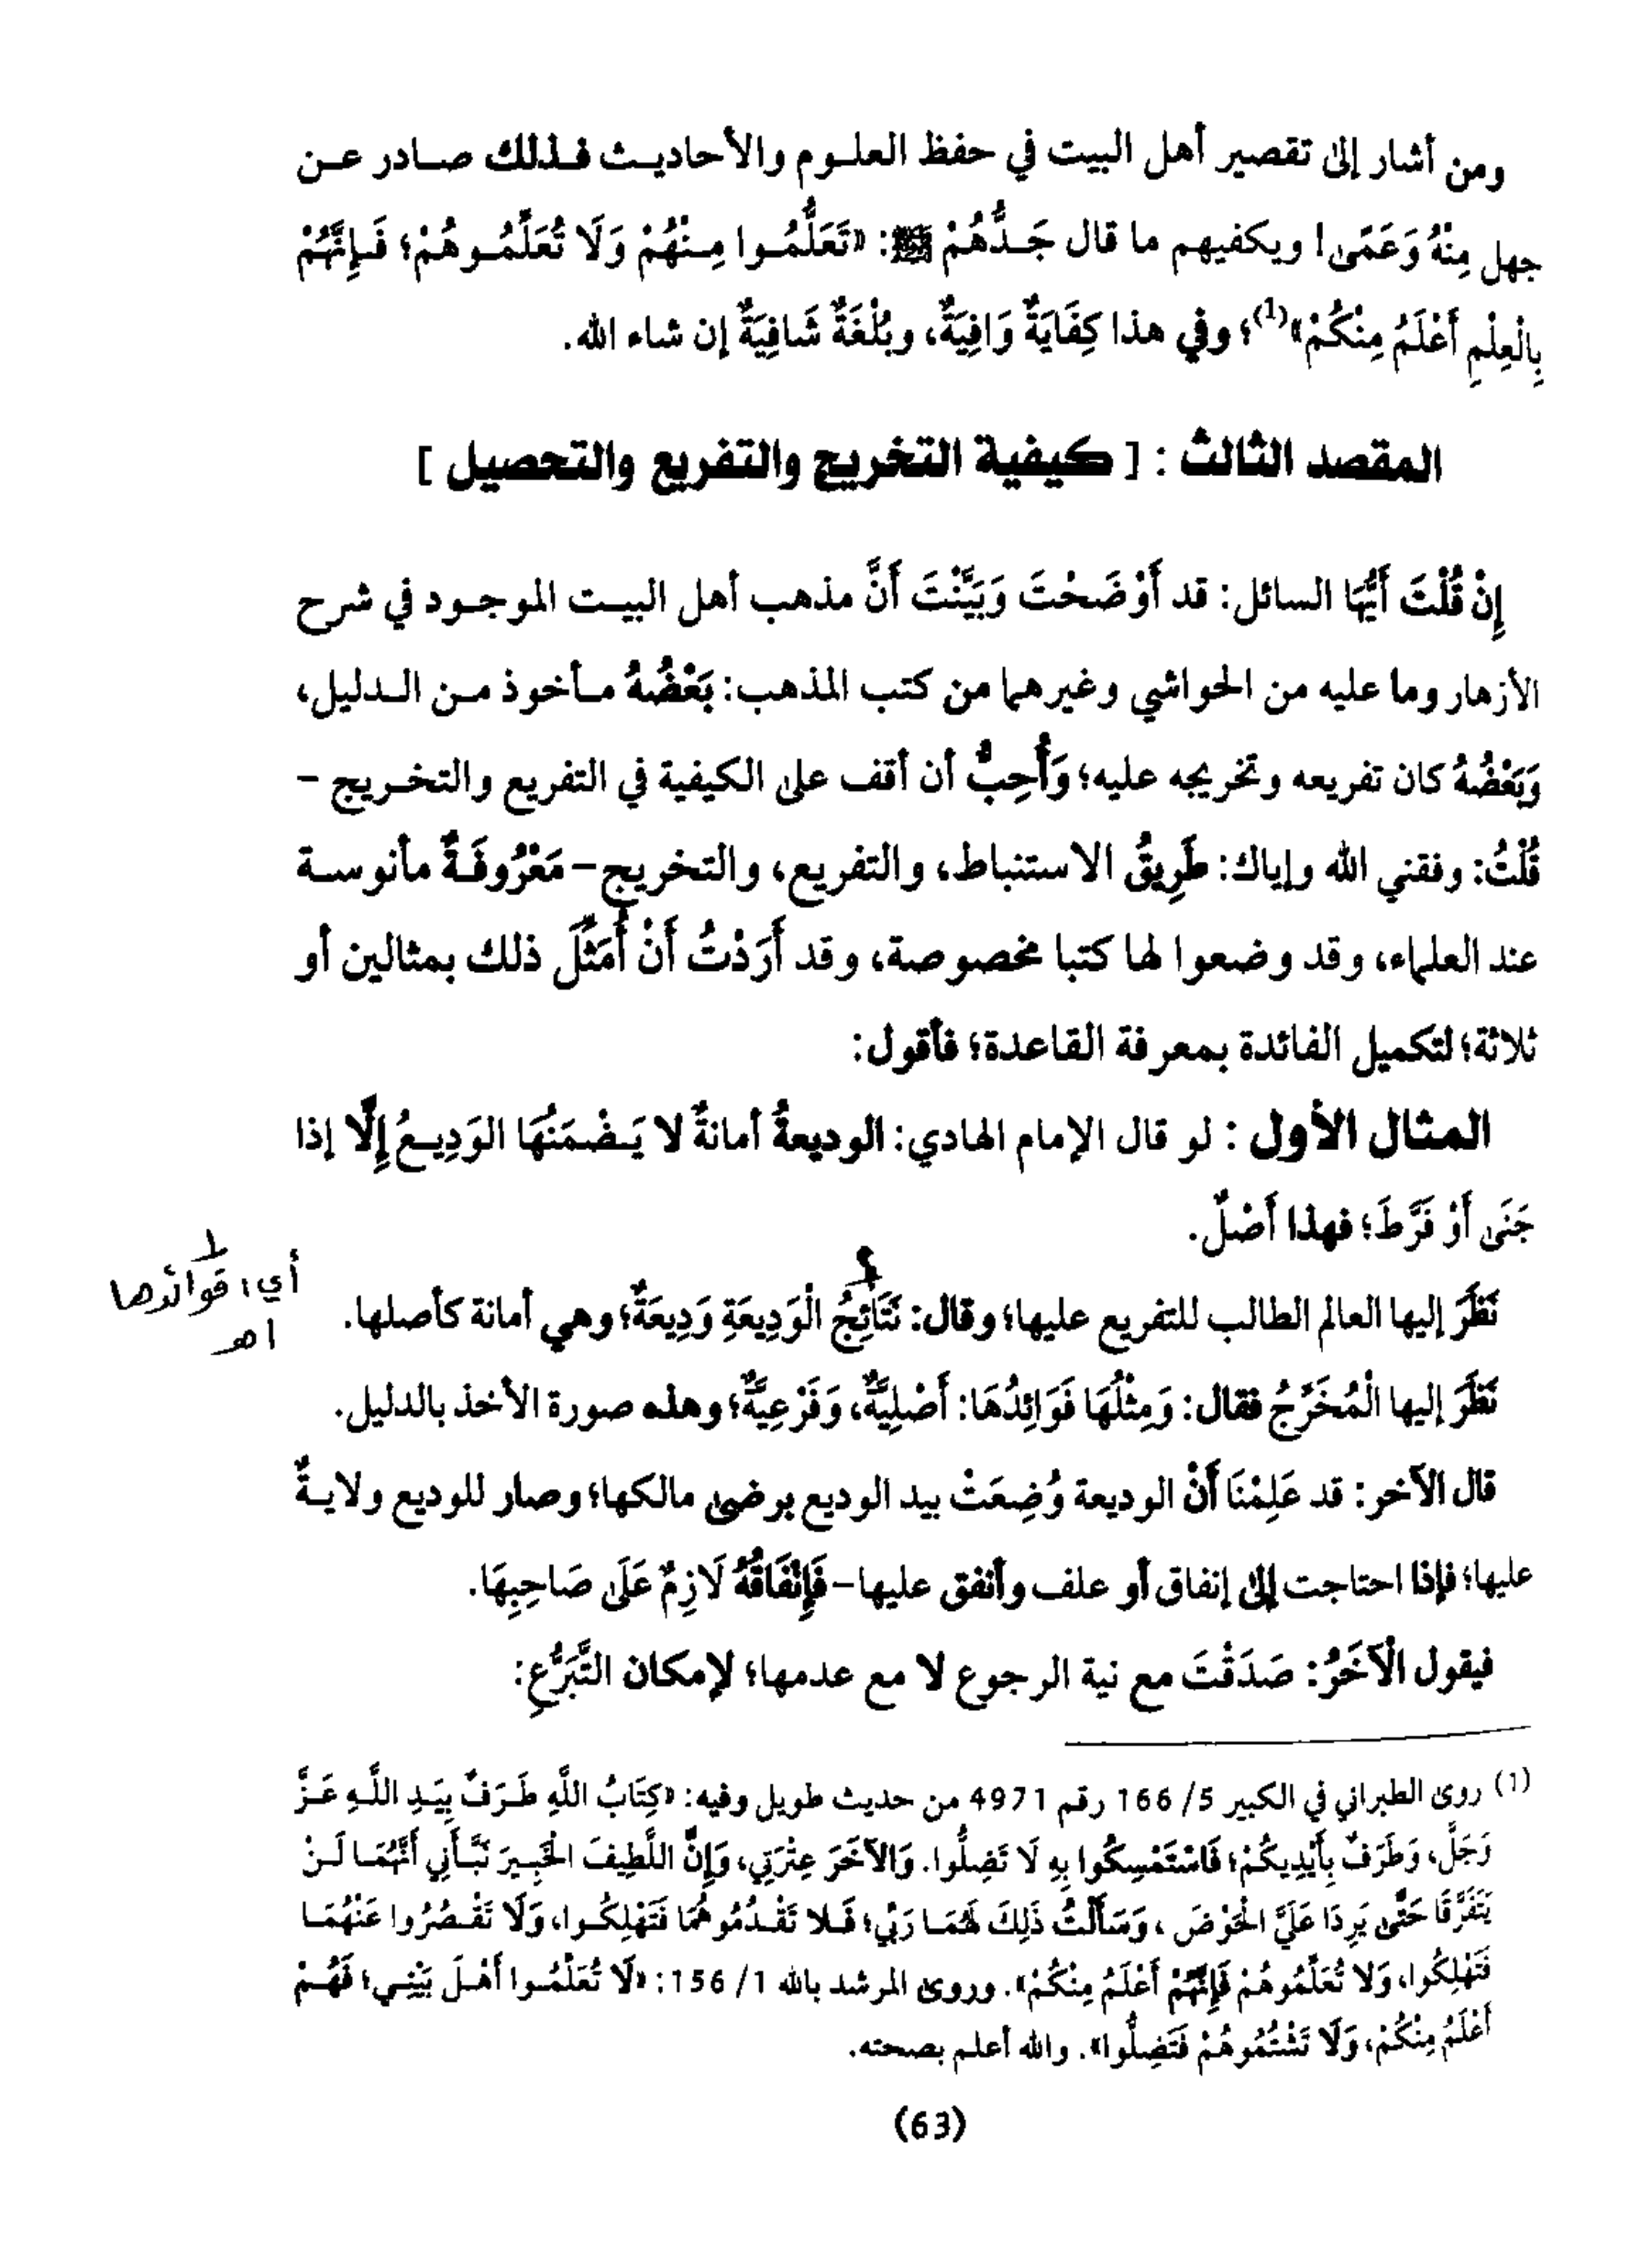 ومن أشار إلى تقصير أهل البيت في حفظ العلوم والأحاديث فذلك صادر عن
جهل مِنْهُ وَعَمَى! ويكفيهم ما قال جَدُّهُمْ ﷺ: «تَعَلَّمُوا مِنْهُمْ وَلَا تُعَلِّمُوهُمْ؛ فَإِنَّهُمْ
بِالْعِلْمِ أَعْلَمُ مِنْكُمْ»(1)؛ وفي هذا كِفَايَةٌ وَافِيَةٌ، وبُلْغَةٌ شَافِيَةٌ إن شاء الله.
المقصد الثالث : [ كيفية التخريج والتفريع والتحصيل ]
إِنْ قُلْتَ أَيُّهَا السائل: قد أَوْضَحْتَ وَبَيَّنْتَ أَنَّ مذهب أهل البيت الموجود في شرح
الأزهار وما عليه من الحواشي وغيرهما من كتب المذهب: بَعْضُهُ مأخوذ من الدليل،
وَبَعْضُهُ كان تفريعه وتخريجه عليه؛ وَأُحِبُّ أن أقف على الكيفية في التفريع والتخريج –
قُلْتُ: وفقني الله وإياك: طَرِيقُ الاستنباط، والتفريع، والتخريج– مَعْرُوفَةٌ مأنوسة
عند العلماء، وقد وضعوا لها كتبا مخصوصة، وقد أَرَدْتُ أَنْ أُمَثِّلَ ذلك بمثالين أو
ثلاثة؛ لتكميل الفائدة بمعرفة القاعدة؛ فأقول:
المثال الأول : لو قال الإمام الهادي: الوديعةُ أمانةٌ لا يَضْمَنُهَا الوَدِيعُ إِلَّا إذا
جَنَى أَوْ فَرَّطَ؛ فهذا أَصْلٌ.
نَظَرَ إليها العالم الطالب للتفريع عليها؛ وقال: نَتَائِجُ الْوَدِيعَةِ وَدِيعَةٌ؛ وهي أمانة كأصلها.
أي: فوائدها
اهـ
نَظَرَ إليها الْمُخَرِّجُ فقال: وَمِثْلُهَا فَوَائِدُهَا: أَصْلِيَّةٌ، وَفَرْعِيَّةٌ؛ وهذه صورة الأخذ بالدليل.
قال الآخر: قد عَلِمْنَا أَنَّ الوديعة وُضِعَتْ بيد الوديع برضى مالكها؛ وصار للوديع ولايةٌ
عليها؛ فإذا احتاجت إلى إنفاق أو علف وأنفق عليها– فَإِنْفَاقُهُ لَازِمٌ عَلَى صَاحِبِهَا.
فيقول الْآخَرُ: صَدَقْتَ مع نية الرجوع لا مع عدمها؛ لإمكان التَّبَرُّعِ:
(1) روى الطبراني في الكبير 5/ 166 رقم 4971 من حديث طويل وفيه: «كِتَابُ اللَّهِ طَرَفٌ بِيَدِ اللَّهِ عَزَّ
وَجَلَّ، وَطَرَفٌ بِأَيْدِيكُمْ؛ فَاسْتَمْسِكُوا بِهِ لَا تَضِلُّوا. وَالآخَرَ عِتْرَتِي، وَإِنَّ اللَّطِيفَ الْخَبِيرَ نَبَّأَنِي أَنَّهُمَا لَنْ
يَتَفَرَّقَا حَتَّى يَرِدَا عَلَيَّ الْحَوْضَ ، وَسَأَلْتُ ذَلِكَ لَهُمَا رَبِّي؛ فَلا تَقْدُمُوهُمَا فَتَهْلِكُوا، وَلَا تَقْصُرُوا عَنْهُمَا
فَتَهْلِكُوا، وَلا تُعَلِّمُوهُمْ فَإِنَّهُمْ أَعْلَمُ مِنْكُمْ». وروى المرشد بالله 1/ 156: «لَا تُعَلِّمُوا أَهْلَ بَيْتِي؛ فَهُمْ
أَعْلَمُ مِنْكُمْ، وَلَا تَشْتُمُوهُمْ فَتَضِلُّوا». والله أعلم بصحته.
(63)